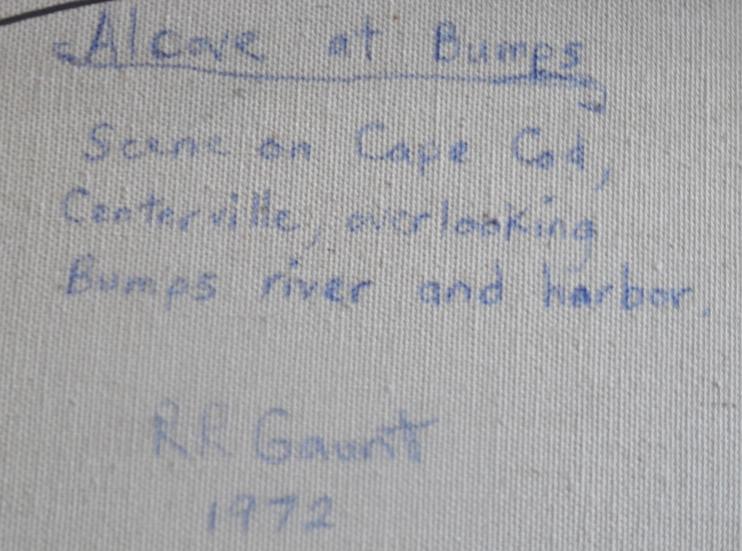 Alcove at Bumps
Scene on Cape Cod,
Centerville, overlooking
Bumps river and harbor.
RR Gaunt
1972